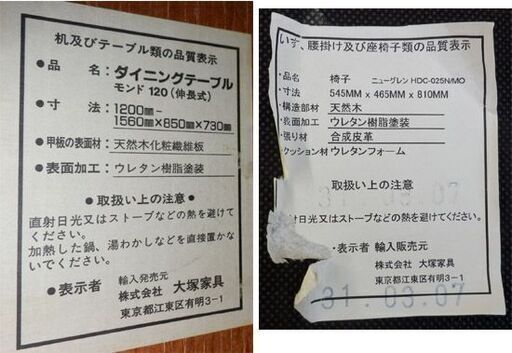 机及びテーブル類の品質表示
●品 名:ダイニングテーブル
モンド120(伸長式)
●寸 法:1200㎜−
1560㎜×850㎜×730㎜
●甲板の表面材:天然木化粧繊維板
●表面加工:ウレタン樹脂塗装
●取扱い上の注意●
直射日光又はストーブなどの熱を避けて
ください。
加熱した鍋、湯わかしなどを直接置かな
いでください。
●表示者 輸入発売元
株式会社 大塚家具
東京都江東区有明3−1
いす、腰掛け及び座椅子類の品質表示
・品名 椅子 ニューグレン HDC-025N/MO
・寸法 545MM X 465MM X 810MM
・構造部材 天然木
・表面加工 ウレタン樹脂塗装
・張り材 合成皮革
クッション材 ウレタンフォーム
取扱い上の注意
31.03.07
直射日光又はストーブなどの熱を避けてください。
・表示者 輸入販売元
株式会社 大塚家具
東京都江東区有明3−1
31.03.07